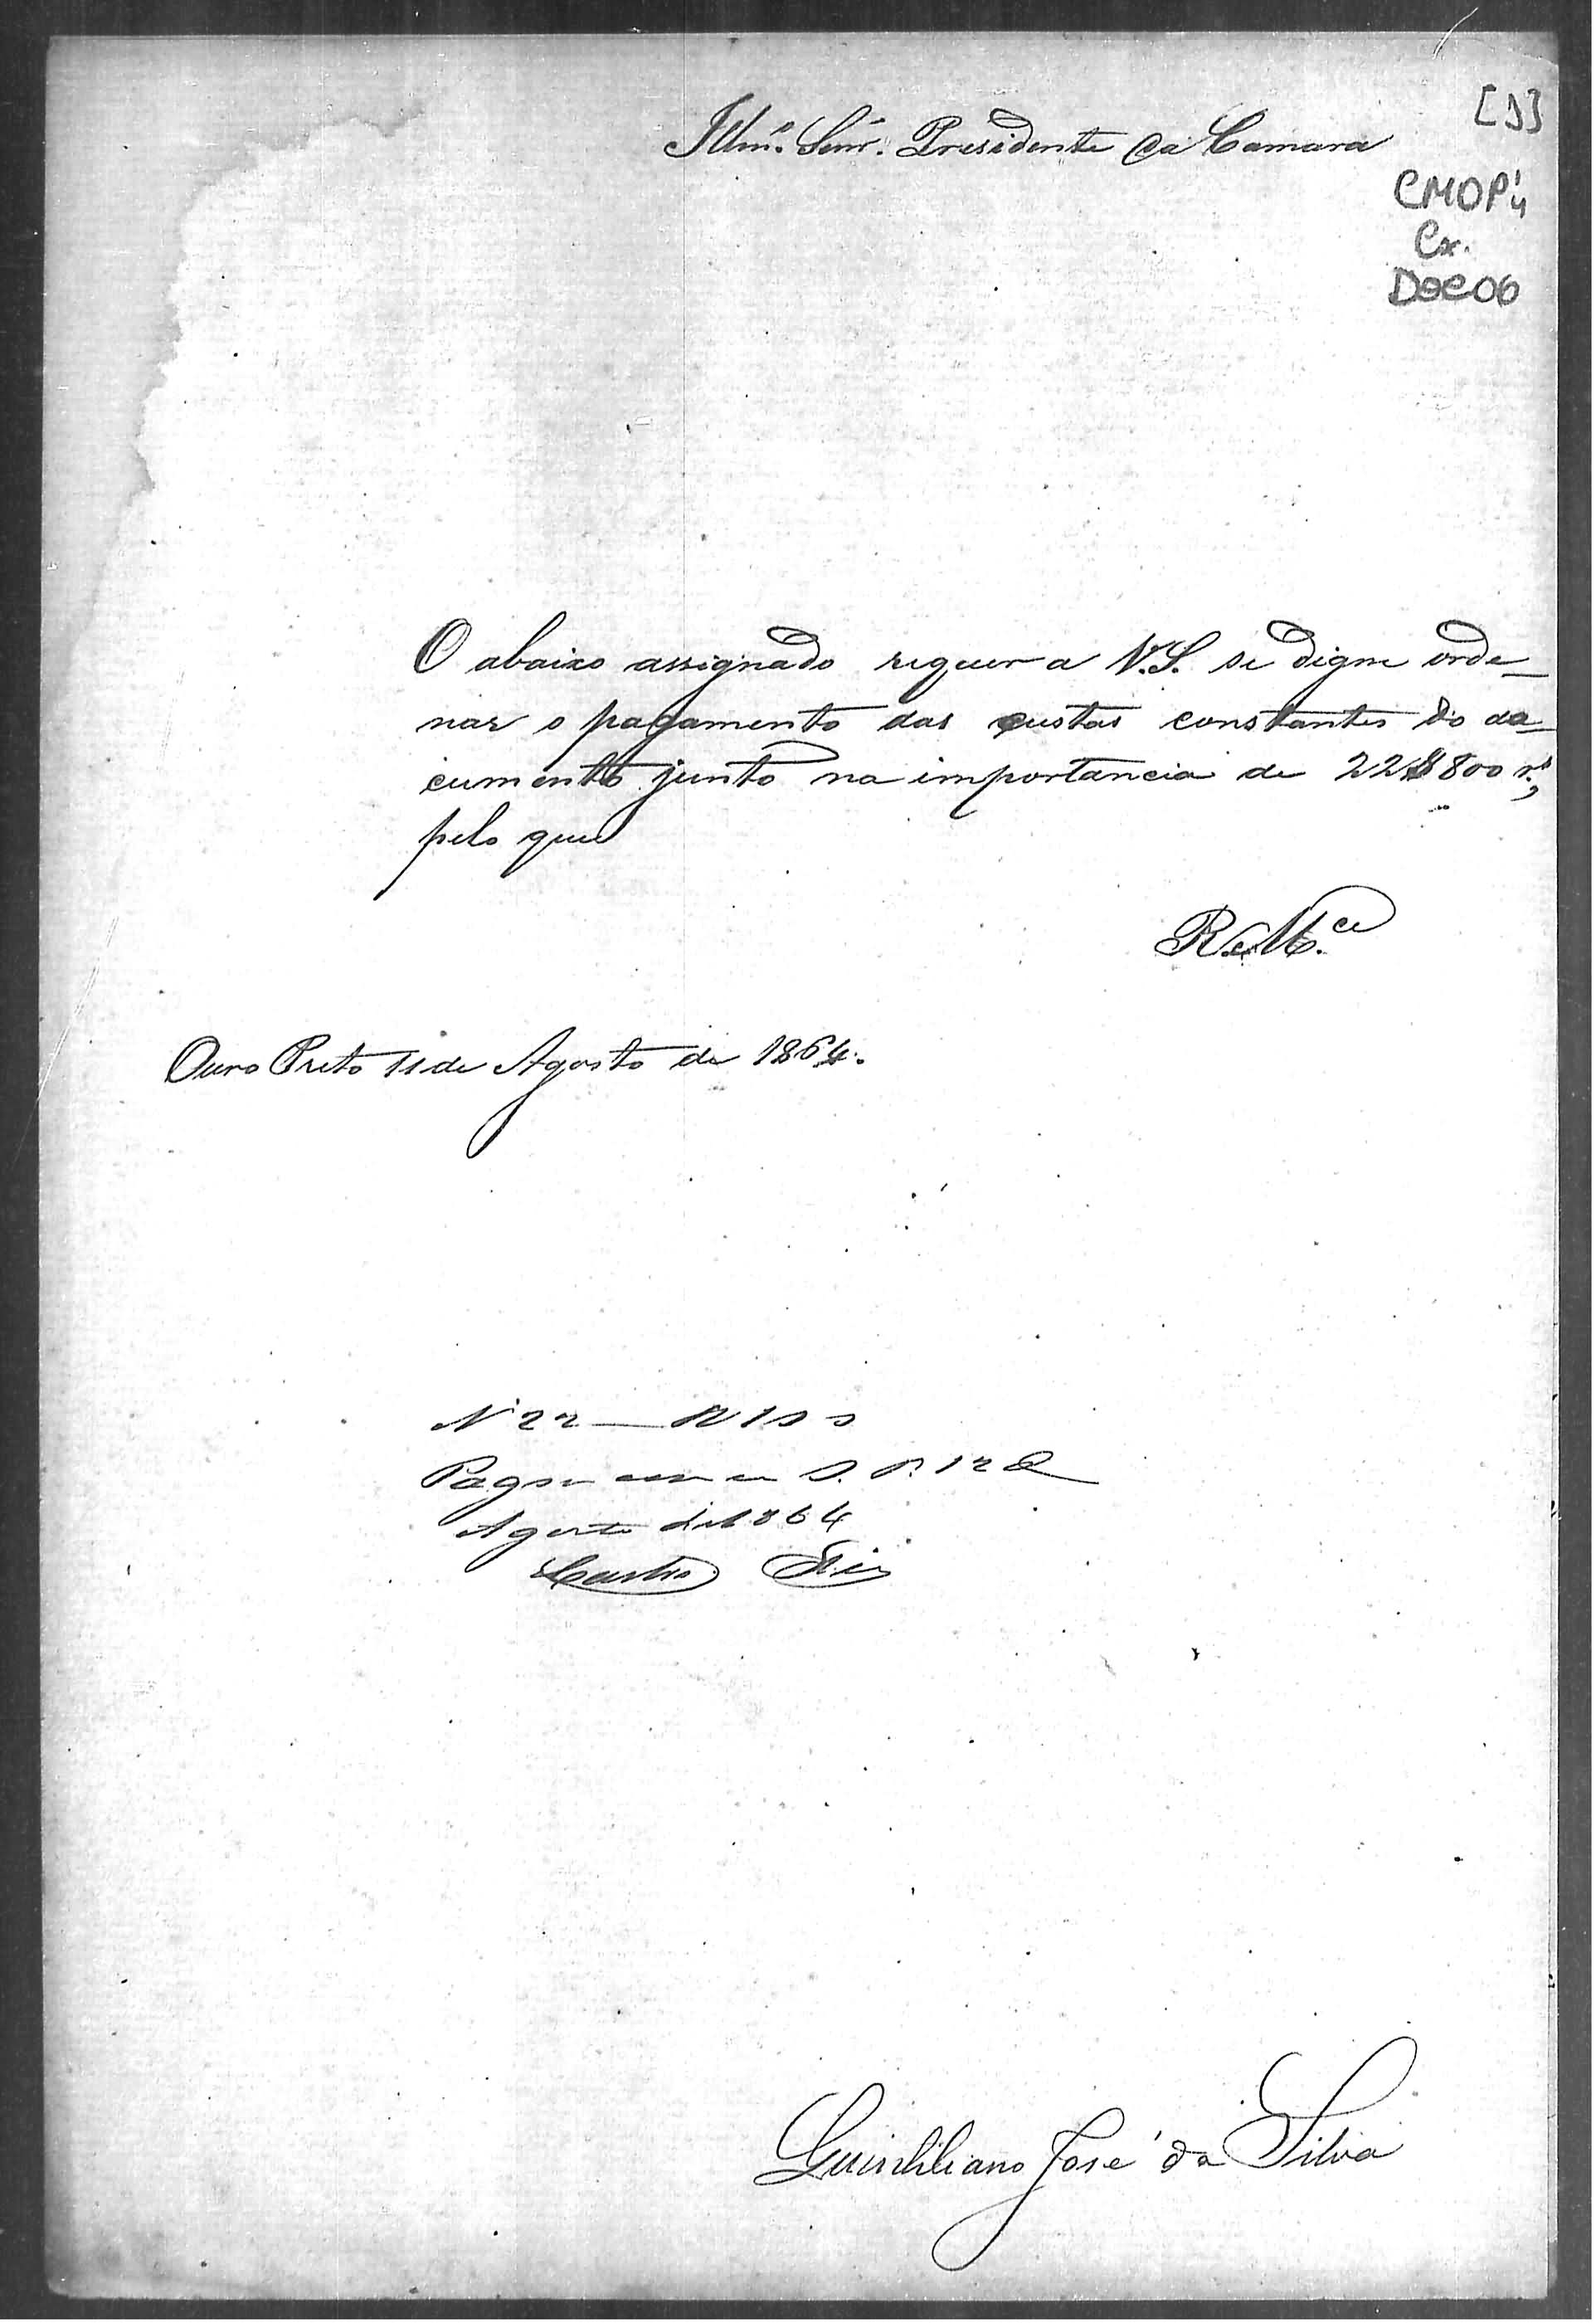 [1]
Illmº. Senr. Presidente da Camara
CMOP 1/4
Cx.
Doc 06
O abaixo assignado requer a V.S. se digne orde_
nar o pagamento das custas constantes do do_
cumento junto na importancia de 22$800 rs,
pelo que
R. Mce
Ouro Preto 11 de Agosto de 1864.
Nº 22
Pague
Agosto de 1864
Castro
Quintiliano José da Silva